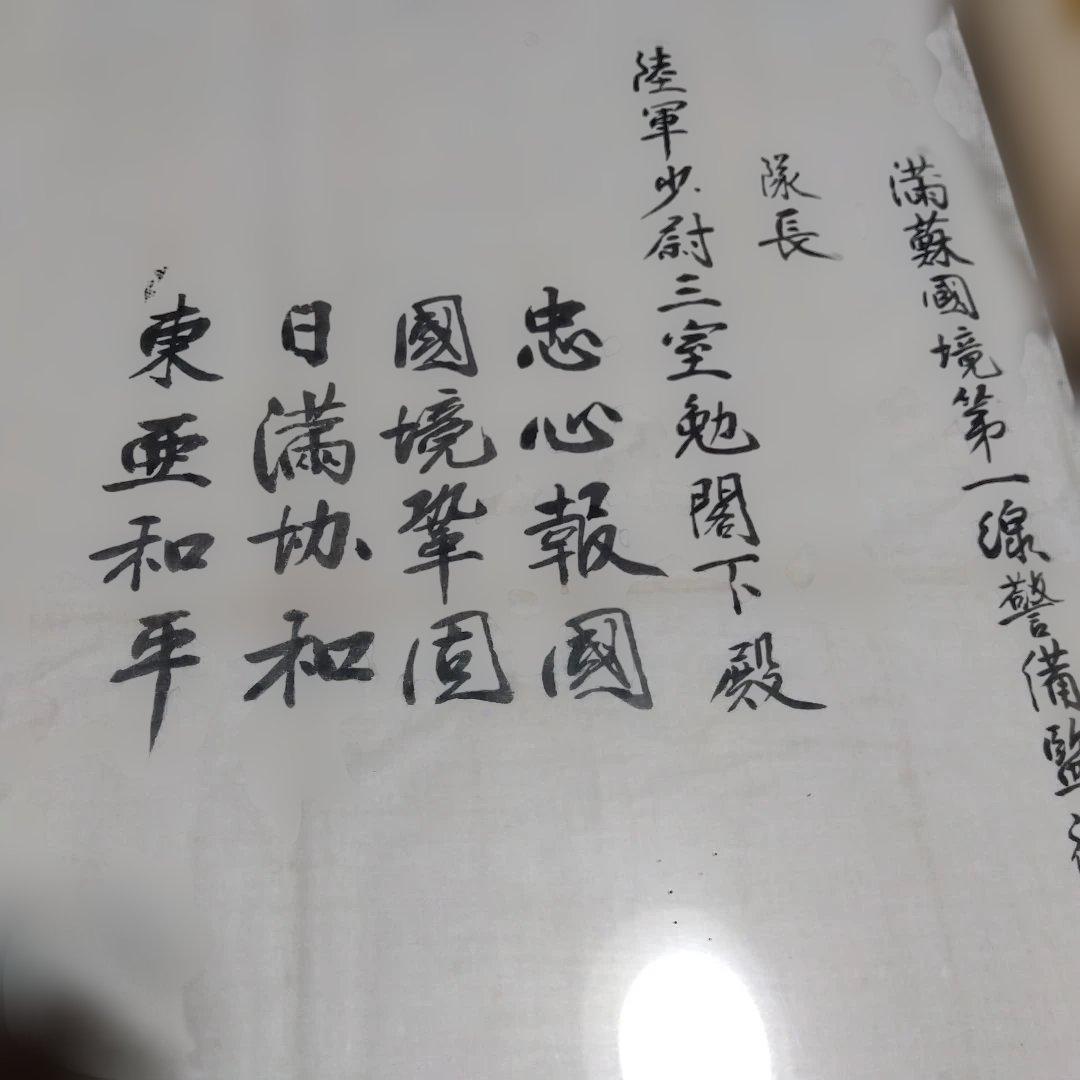 滿蘇國境第一線警備監視
隊長
陸軍少尉三室勉閣下殿
忠心報國
國境鞏固
日滿协和
東亜和平